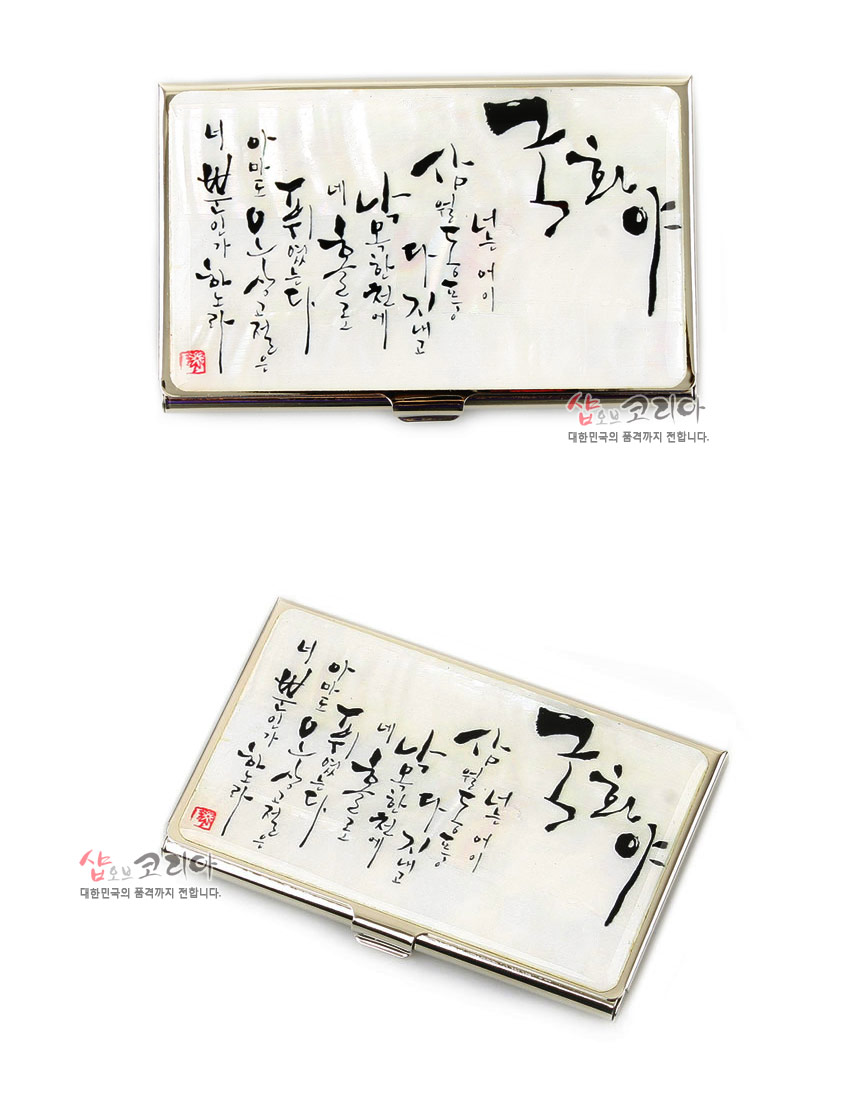 국화야
너는 어이
삼월동풍
다 지내고
낙목한천에
네 홀로
퓌였는다
아마도
오상고절은
너뿐인가
하노라
샵오브코리아
대한민국의 품격까지 전합니다.
국화야
너는 어이
삼월동풍
다 지내고
낙목한천에
네 홀로
퓌였는다
아마도
오상고절은
너뿐인가
하노라
샵오브코리아
대한민국의 품격까지 전합니다.